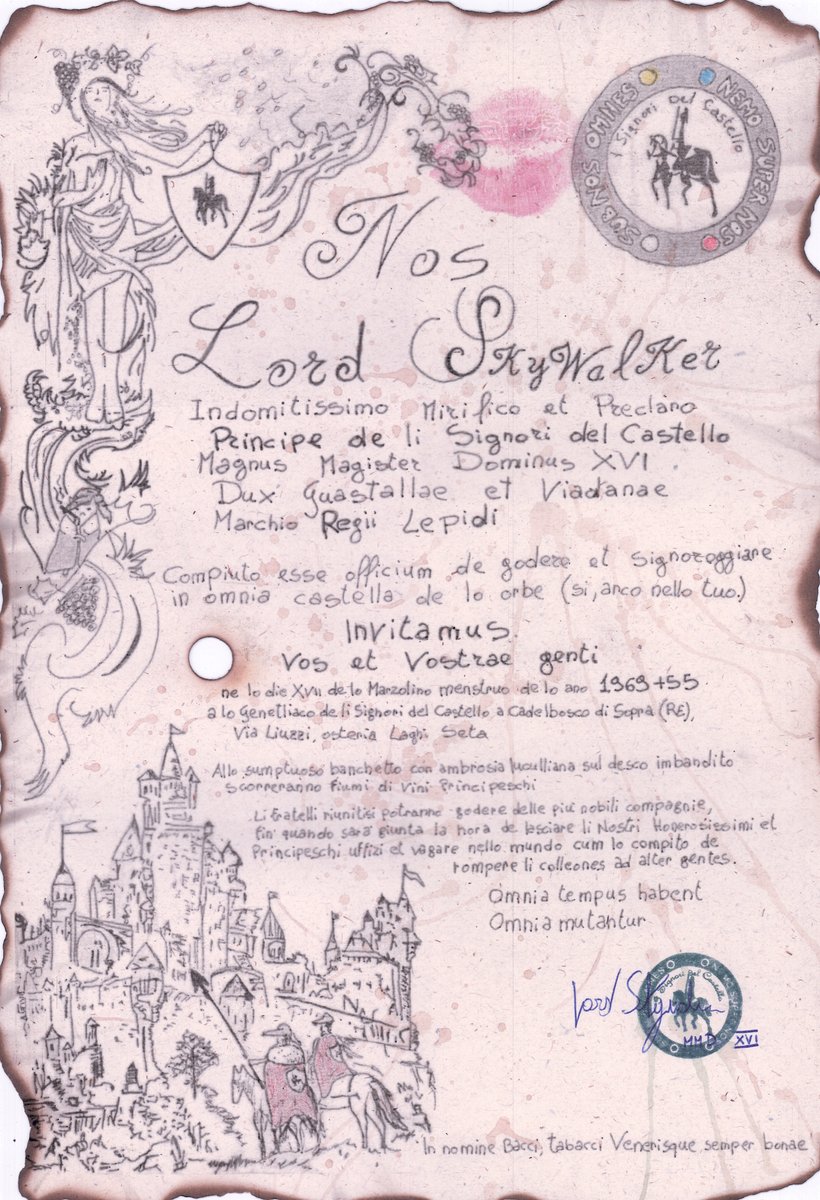 SUB NOS OMNES
NEMO SUPER NOS
I Signori Del Castello
Nos
Lord SkyWalker
Indomitissimo Mirifico et Preclaro
Principe de li Signori del Castello
Magnus Magister Dominus XVI
Dux Guastallae et Viadanae
Marchio Regii Lepidi
Compiuto esse officium de godere et signoreggiare
in omnia castella de lo orbe (si, anco nello tuo.)
Invitamus
Vos et Vostrae genti
ne lo die XVII de lo Marzolino menstruo de lo ano 1969+55
a lo Genetliaco de li Signori del Castello a Cadelbosco di Sopra (RE),
Via Liuzzi, osteria Laghi Seta
Allo sumptuoso banchetto con ambrosia luculliana sul desco imbandito
scorreranno fiumi di vini Principeschi
Li fratelli riunitisi potranno godere delle più nobili compagnie,
fin quando sarà giunta la hora de lasciare li Nostri Honerosissimi et
Principeschi uffizi et vagare nello mondo cum lo compito de
rompere li colleones ad alter gentes.
Omnia tempus habent
Omnia mutantur
Signori del Castello
XVI
In nomine Bacci, tabacci Venerisque semper bonae